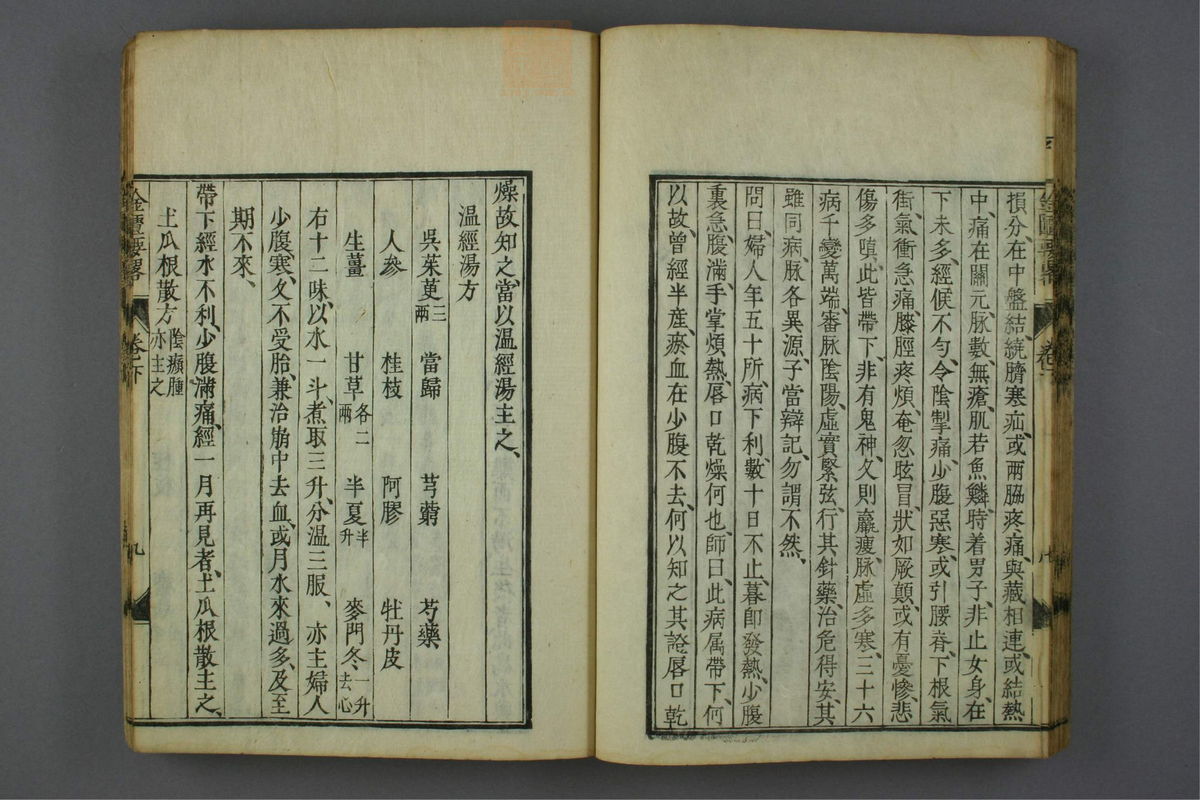 損分在中盤結繞臍寒疝或兩脇疼痛與藏相連或結熱
中痛在關元脉數無瘡肌若魚鱗時着男子非止女身在
下未多經候不匀令陰掣痛少腹惡寒或引腰脊下根氣
街氣衝急痛膝脛疼煩奄忽眩冒狀如厥顛或有憂慘悲
傷多嗔此皆帶下非有鬼神久則羸瘦脉虛多寒三十六
病千變萬端審脉陰陽虛實緊弦行其針藥治危得安其
雖同病脉各異源子當辯記勿謂不然
問曰婦人年五十所病下利數十日不止暮卽發熱少腹
裏急腹滿手掌煩熱唇口乾燥何也師曰此病属帶下何
以故曾經半産瘀血在少腹不去何以知之其證唇口乾
燥故知之當以温經湯主之
温經湯方
吳茱萸三兩 當歸 芎藭 芍藥
人參 桂枝 阿膠 牡丹皮
生薑 甘草各二兩 半夏半升 麥門冬一升去心
右十二味以水一斗煮取三升分温三服、亦主婦人
少腹寒久不受胎兼治崩中去血或月水來過多及至
期不來、
帶下經水不利少腹滿痛經一月再見者土瓜根散主之
土瓜根散方陰㿗腫亦主之
金匱要畧 卷下 九